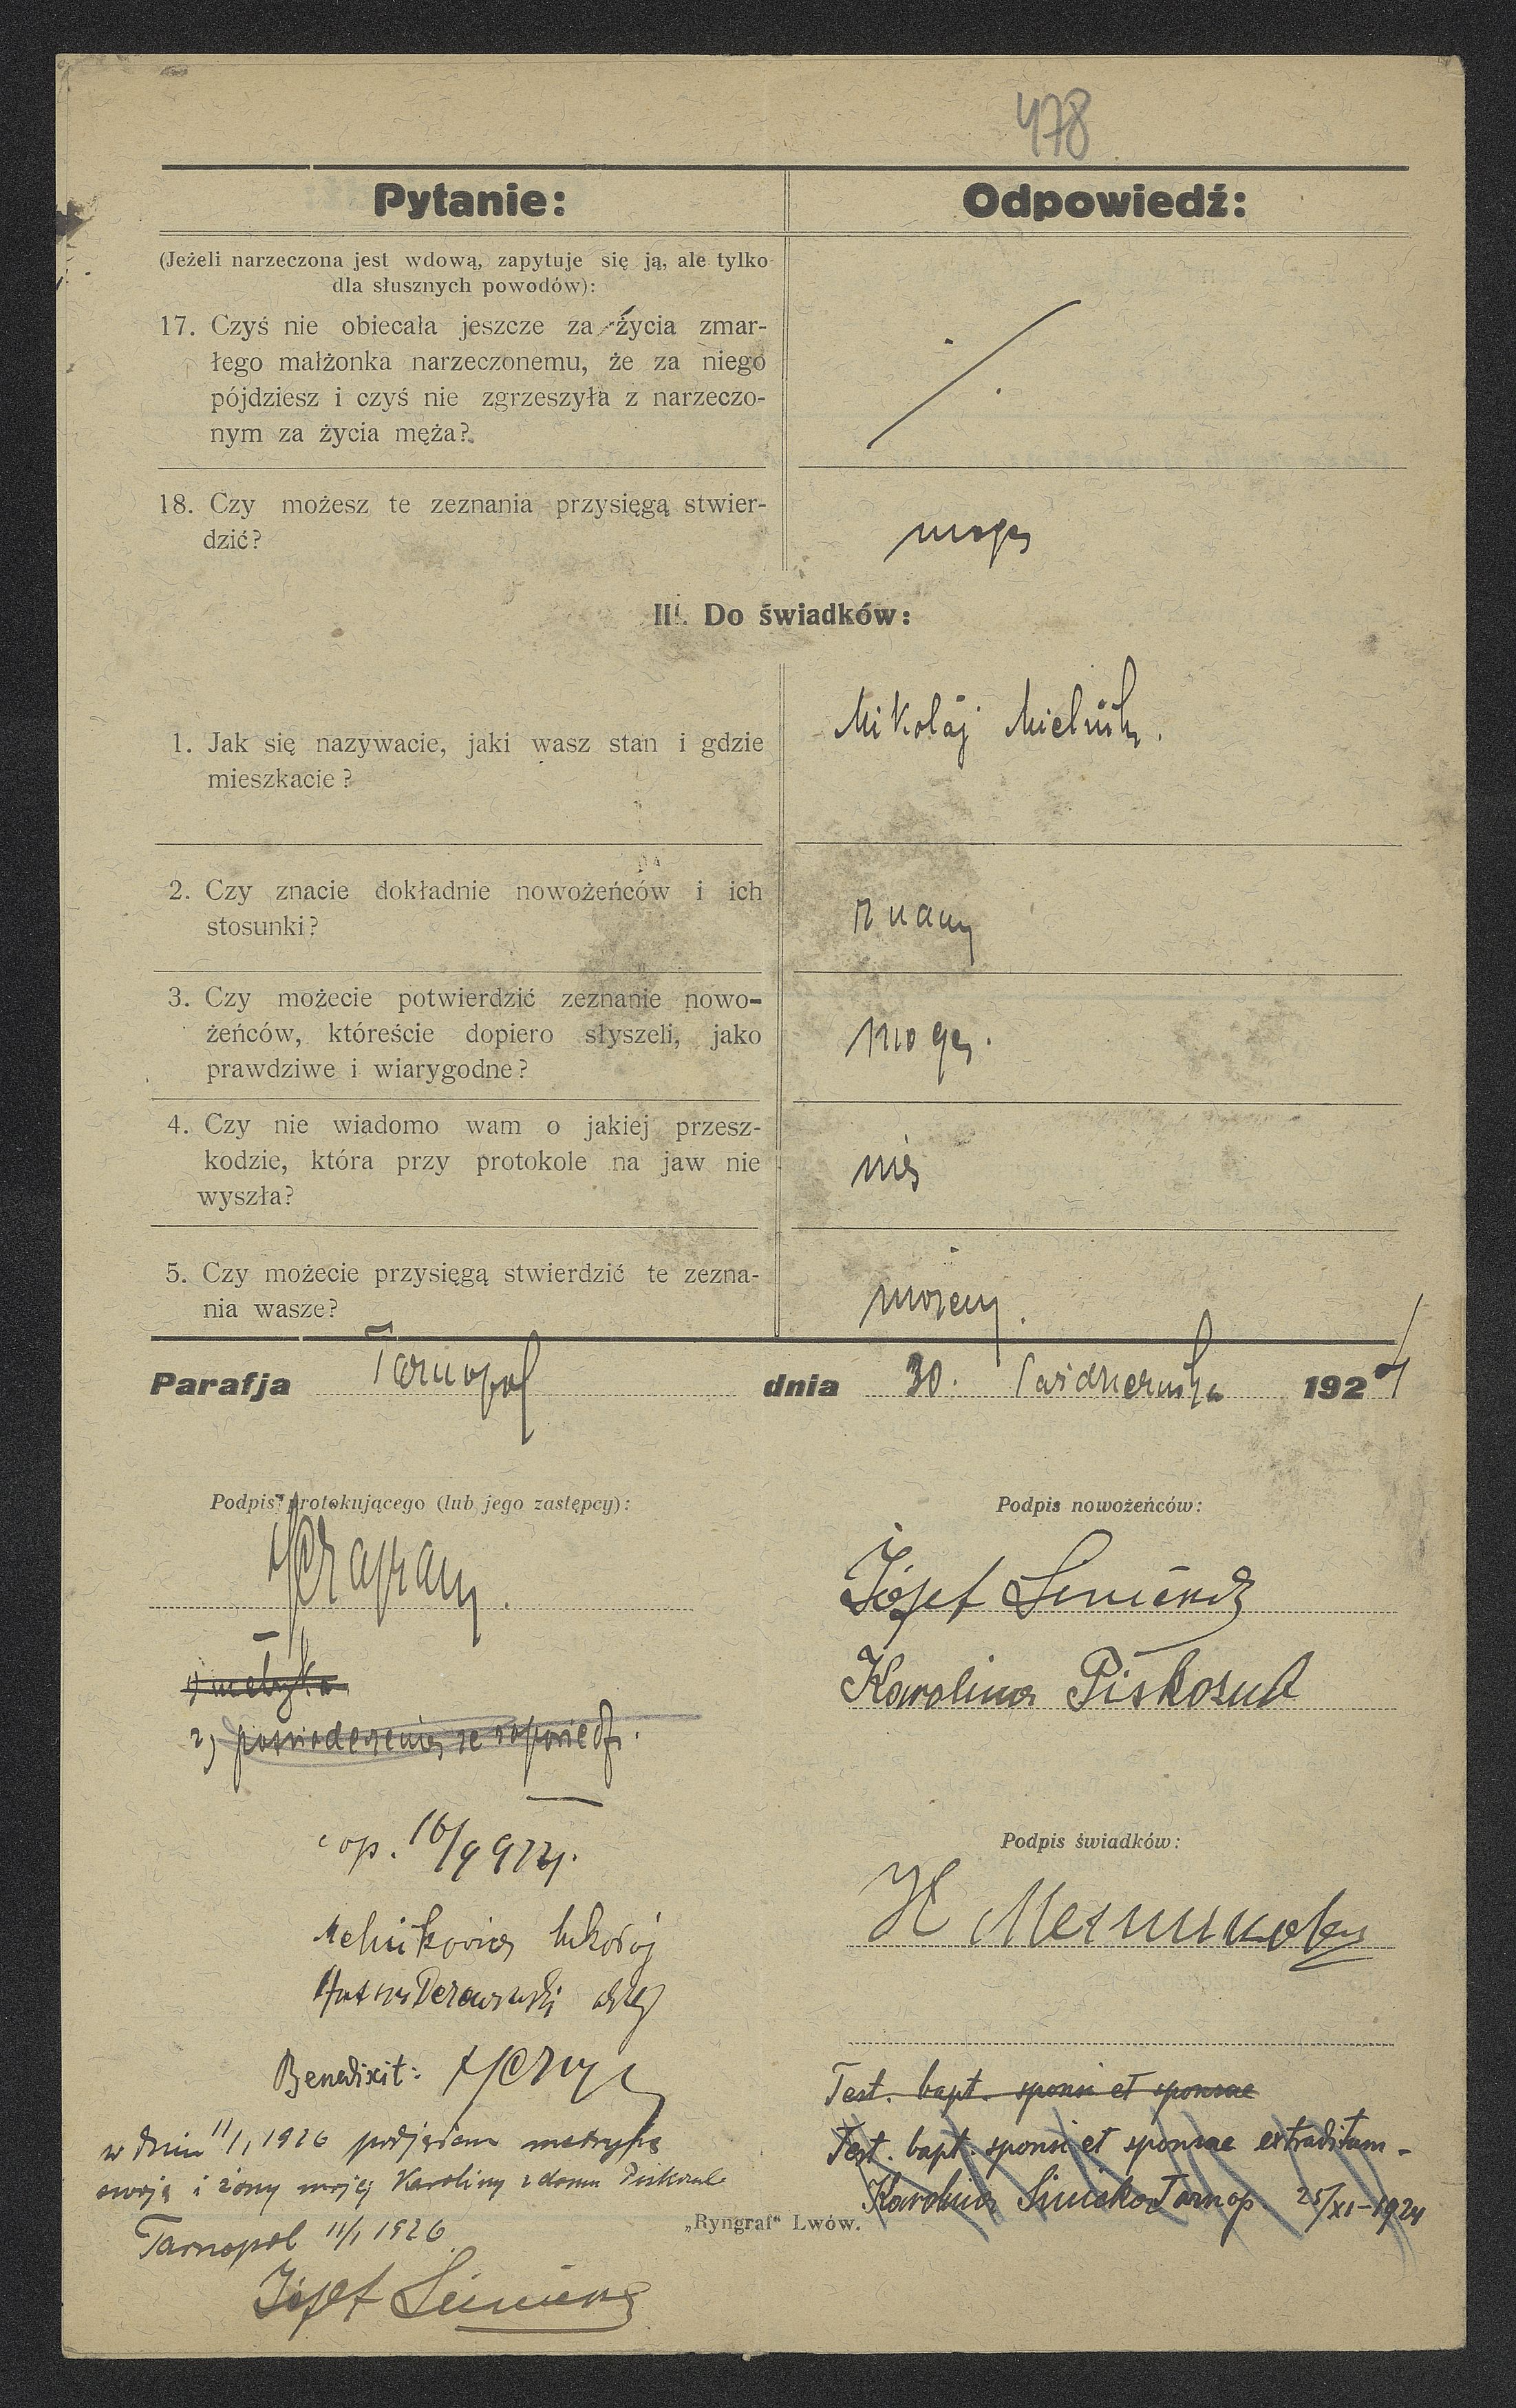 478
Pytanie:
Odpowiedź:
(Jeżeli narzeczona jest wdową, zapytuje się ją, ale tylko
dla słusznych powodów):
17. Czyś nie obiecała jeszcze za życia zmar-
łego małżonka narzeczonemu, że za niego
pójdziesz i czyś nie zgrzeszyła z narzeczo-
nym za życia męża?
18. Czy możesz te zeznania przysięgą stwier-
dzić?
mogę
III. Do świadków:
1. Jak się nazywacie, jaki wasz stan i gdzie
mieszkacie?
Mikołaj Mielnik.
2. Czy znacie dokładnie nowożeńców i ich
stosunki?
znamy
3. Czy możecie potwierdzić zeznanie nowo-
żeńców, któreście dopiero słyszeli, jako
prawdziwe i wiarygodne?
mogę.
4. Czy nie wiadomo wam o jakiej przesz-
kodzie, która przy protokole na jaw nie
wyszła?
nie
5. Czy możecie przysięgą stwierdzić te zezna-
nia wasze?
możemy.
Parafja Tarnopol dnia 30. Października 1924
Podpis protokującego (lub jego zastępcy):
Podpis nowożeńców:
Józef
Karolina Piskozub
1) metryka
2) poświadczenie ze zapowiedzi.
cop. 16/9 924.
Podpis świadków:
Benedixit:
Test. bapt. sponsi et sponsae
Test. bapt. sponsi et sponsae extraditam -
Karolina Tarnop 25/XI-1924
w dniu 11/1 1926 podjąłem metrykę
swoją i żony mojej Karoliny z domu Piskozub
Tarnopol 11/1 1926
Józef
„Ryngraf“ Lwów.